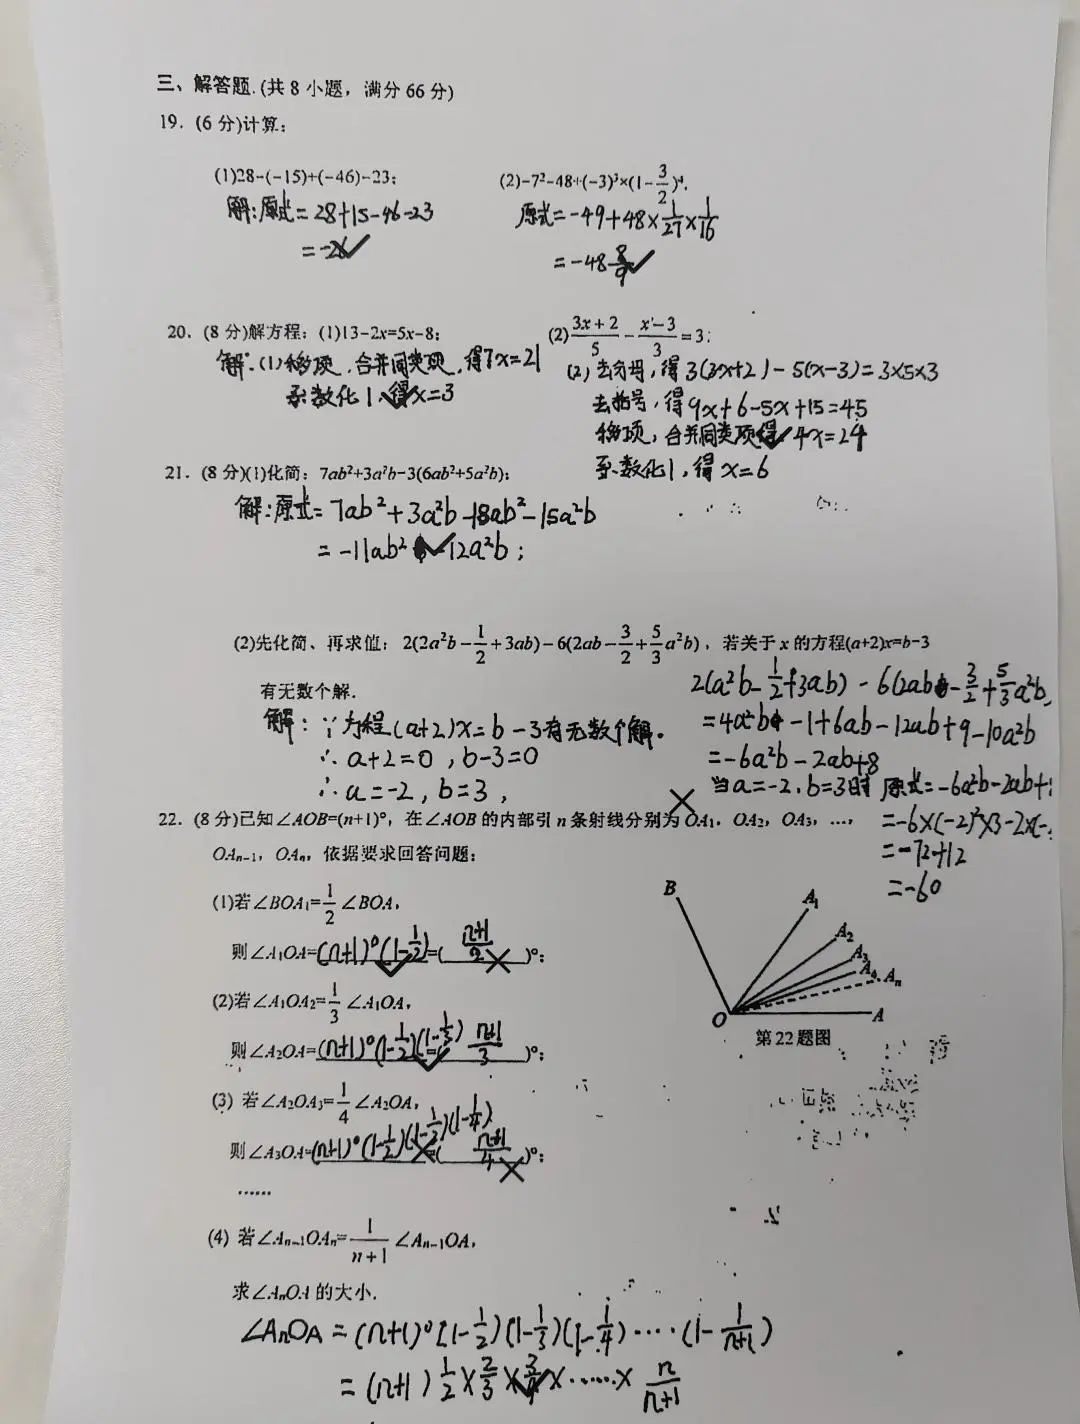 三、解答题.(共 8 小题，满分 66 分)
19．(6 分)计算：
(1)28-(-15)+(-46)-23;
(2)-7²-48÷(-3)³×(1-3/2)⁴.
解:原式=28+15-46-23
=-26
原式=-49+48×1/27×1/16
=-48 8/9
20．(8 分)解方程：(1)13-2x=5x-8;
(2)(3x+2)/5-(x-3)/3=3;
解:(1)移项,合并同类项,得7x=21
系数化1,得x=3
(2)去分母,得3(3x+2)-5(x-3)=3×5×3
去括号,得9x+6-5x+15=45
移项,合并同类项得 4x=24
系数化1,得x=6
21．(8 分)(1)化简：7ab²+3a²b-3(6ab²+5a²b);
解:原式=7ab²+3a²b-18ab²-15a²b
=-11ab²-12a²b;
(2)先化简、再求值：2(2a²b-1/2+3ab)-6(2ab-3/2+5/3a²b)，若关于 x 的方程(a+2)x=b-3
有无数个解.
解:∵方程(a+2)x=b-3有无数个解。
∴a+2=0,b-3=0
∴a=-2,b=3,
2(a²b-1/2+3ab)-6(2ab-3/2+5/3a²b)
=4a²b-1+6ab-12ab+9-10a²b
=-6a²b-2ab+8
当a=-2.b=3时 原式=-6a²b-2ab+
=-6×(-2)²×3-2×(-
=-72+12
=-60
22．(8 分)已知∠AOB=(n+1)°，在∠AOB 的内部引 n 条射线分别为 OA₁，OA₂，OA₃，…，
OAₙ₋₁，OAₙ，依据要求回答问题：
(1)若∠BOA₁=1/2∠BOA，
则∠A₁OA=(n+1)°(1-1/2)=( (n+1)/2 )°;
(2)若∠A₁OA₂=1/3∠A₁OA，
则∠A₂OA=(n+1)°(1-1/2)(1-1/3)=( (n+1)/3 )°;
(3) 若∠A₂OA₃=1/4∠A₂OA，
则∠A₃OA=(n+1)°(1-1/2)(1-1/3)(1-1/4)=( (n+1)/4 )°;
……
(4) 若∠Aₙ₋₁OAₙ=1/(n+1)∠Aₙ₋₁OA，
求∠AₙOA 的大小.
∠AₙOA=(n+1)°(1-1/2)(1-1/3)(1-1/4)····(1-1/(n+1))
=(n+1)1/2×2/3×3/4×……×n/(n+1)
B
A₁
A₂
A₃
A₄
Aₙ
O
A
第 22 题图